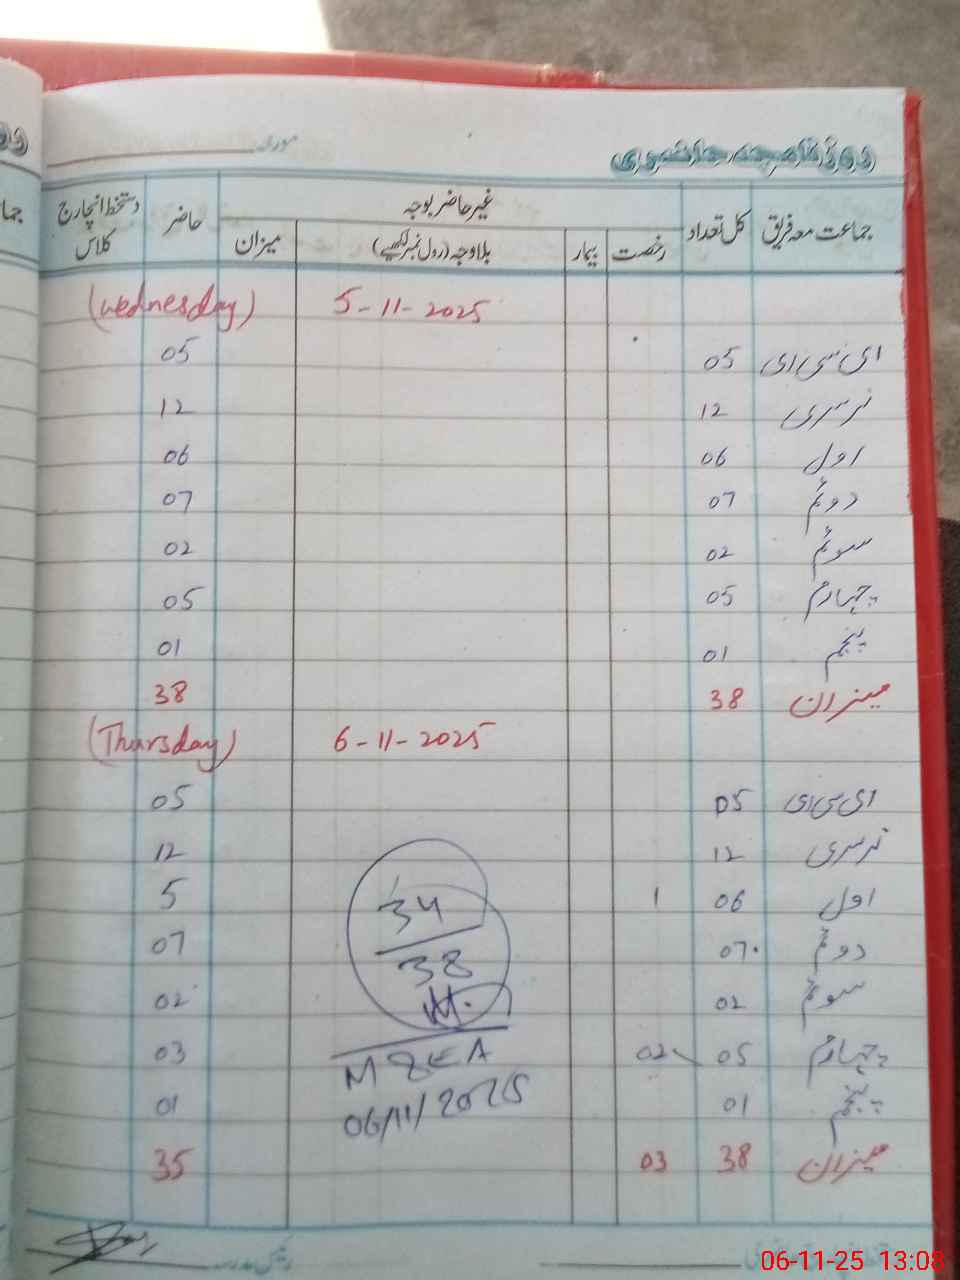 روزنامچہ حاضری مورخہ
جماعت معہ فریق کل تعداد غیر حاضر بوجہ حاضر دستخط انچارج کلاس
رخصت بیمار بلاوجہ (رول نمبر لکھیے) میزان
5-11-2025 (Wednesday)
ای سی ای 05 05
نرسری 12 12
اول 06 06
دوئم 07 07
سوئم 02 02
چہارم 05 05
پنجم 01 01
میزان 38 38
6-11-2025 (Thursday)
ای سی ای 05 05
نرسری 12 12
اول 06 1 5
دوئم 07 07
سوئم 02 02
چہارم 05 02 03
پنجم 01 01
میزان 38 03 35
34
38
M
MEEA
06/11/2025
رئیس مدرسہ
06-11-25 13:08